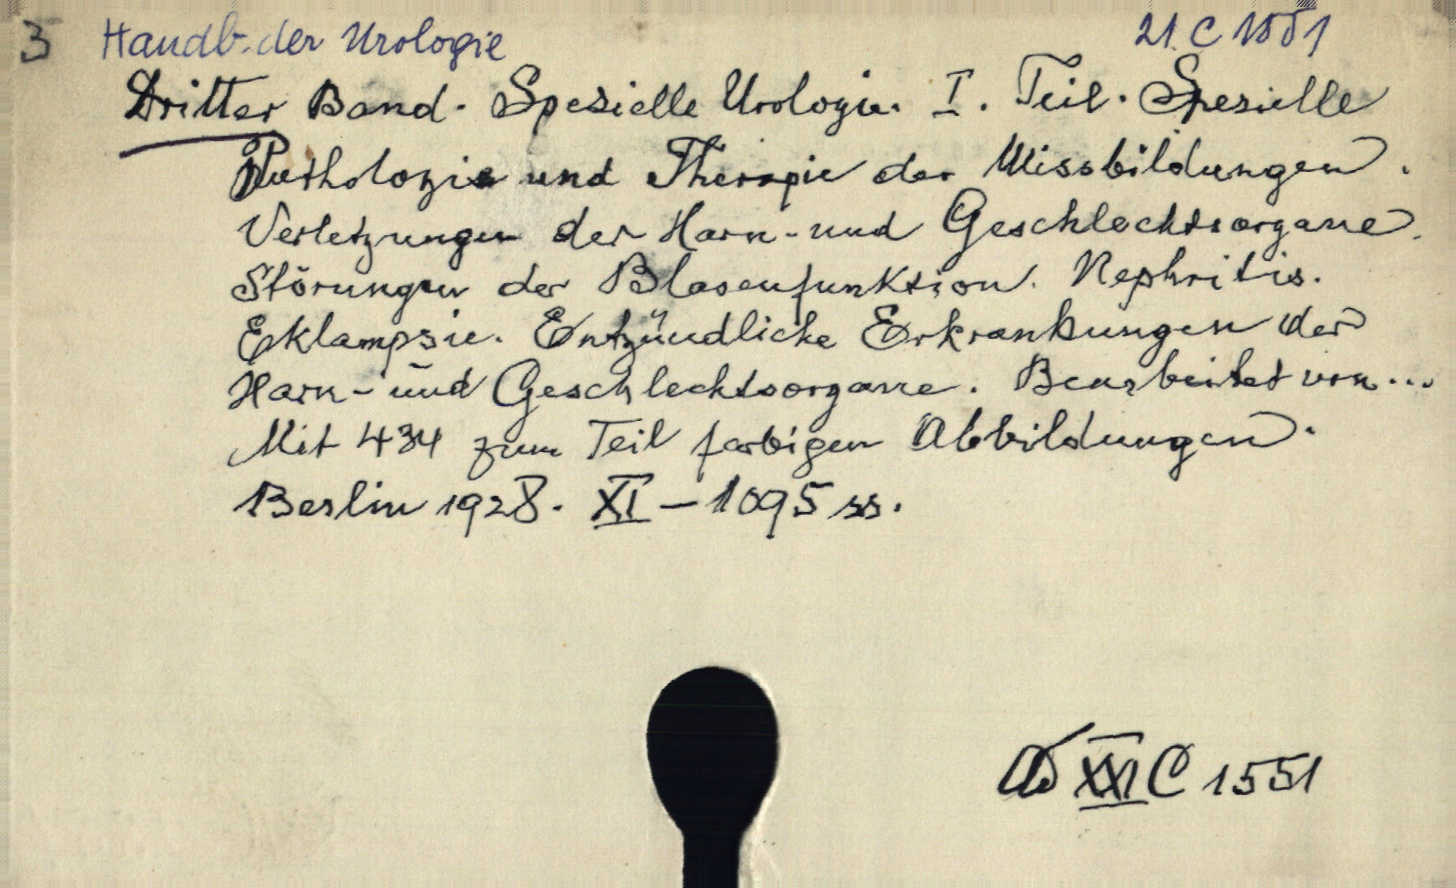 3 Handb. der Urologie 21. C 1551
Dritter Band. Spezielle Urologie. I. Teil. Spezielle
Pathologie und Therapie der Missbildungen.
Verletzungen der Harn- und Geschlechtsorgane.
Störungen der Blasenfunktion. Nephritis.
Eklampsie. Entzündliche Erkrankungen der
Harn- und Geschlechtsorgane. Bearbeitet von...
Mit 434 zum Teil farbigen Abbildungen.
Berlin 1928. XI – 1095 ss.
XXI C 1551